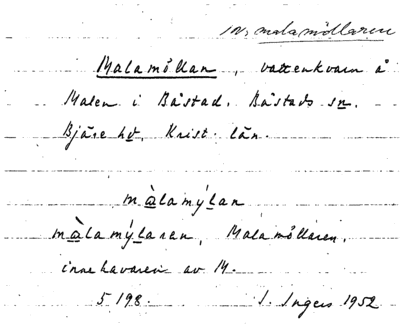 se malamöllaren
Malamöllan, vattenkvarn å
Malen i Båstad. Båstads sn.
Bjäre hd, Krist. län.
màlamýlan
màlamýlaran, Malamöllaren,
innehavaren av M.
5198. I. Ingers 1952